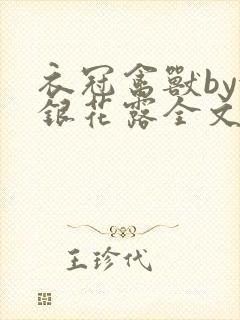 衣冠禽獸by
銀花露全文
王珍代